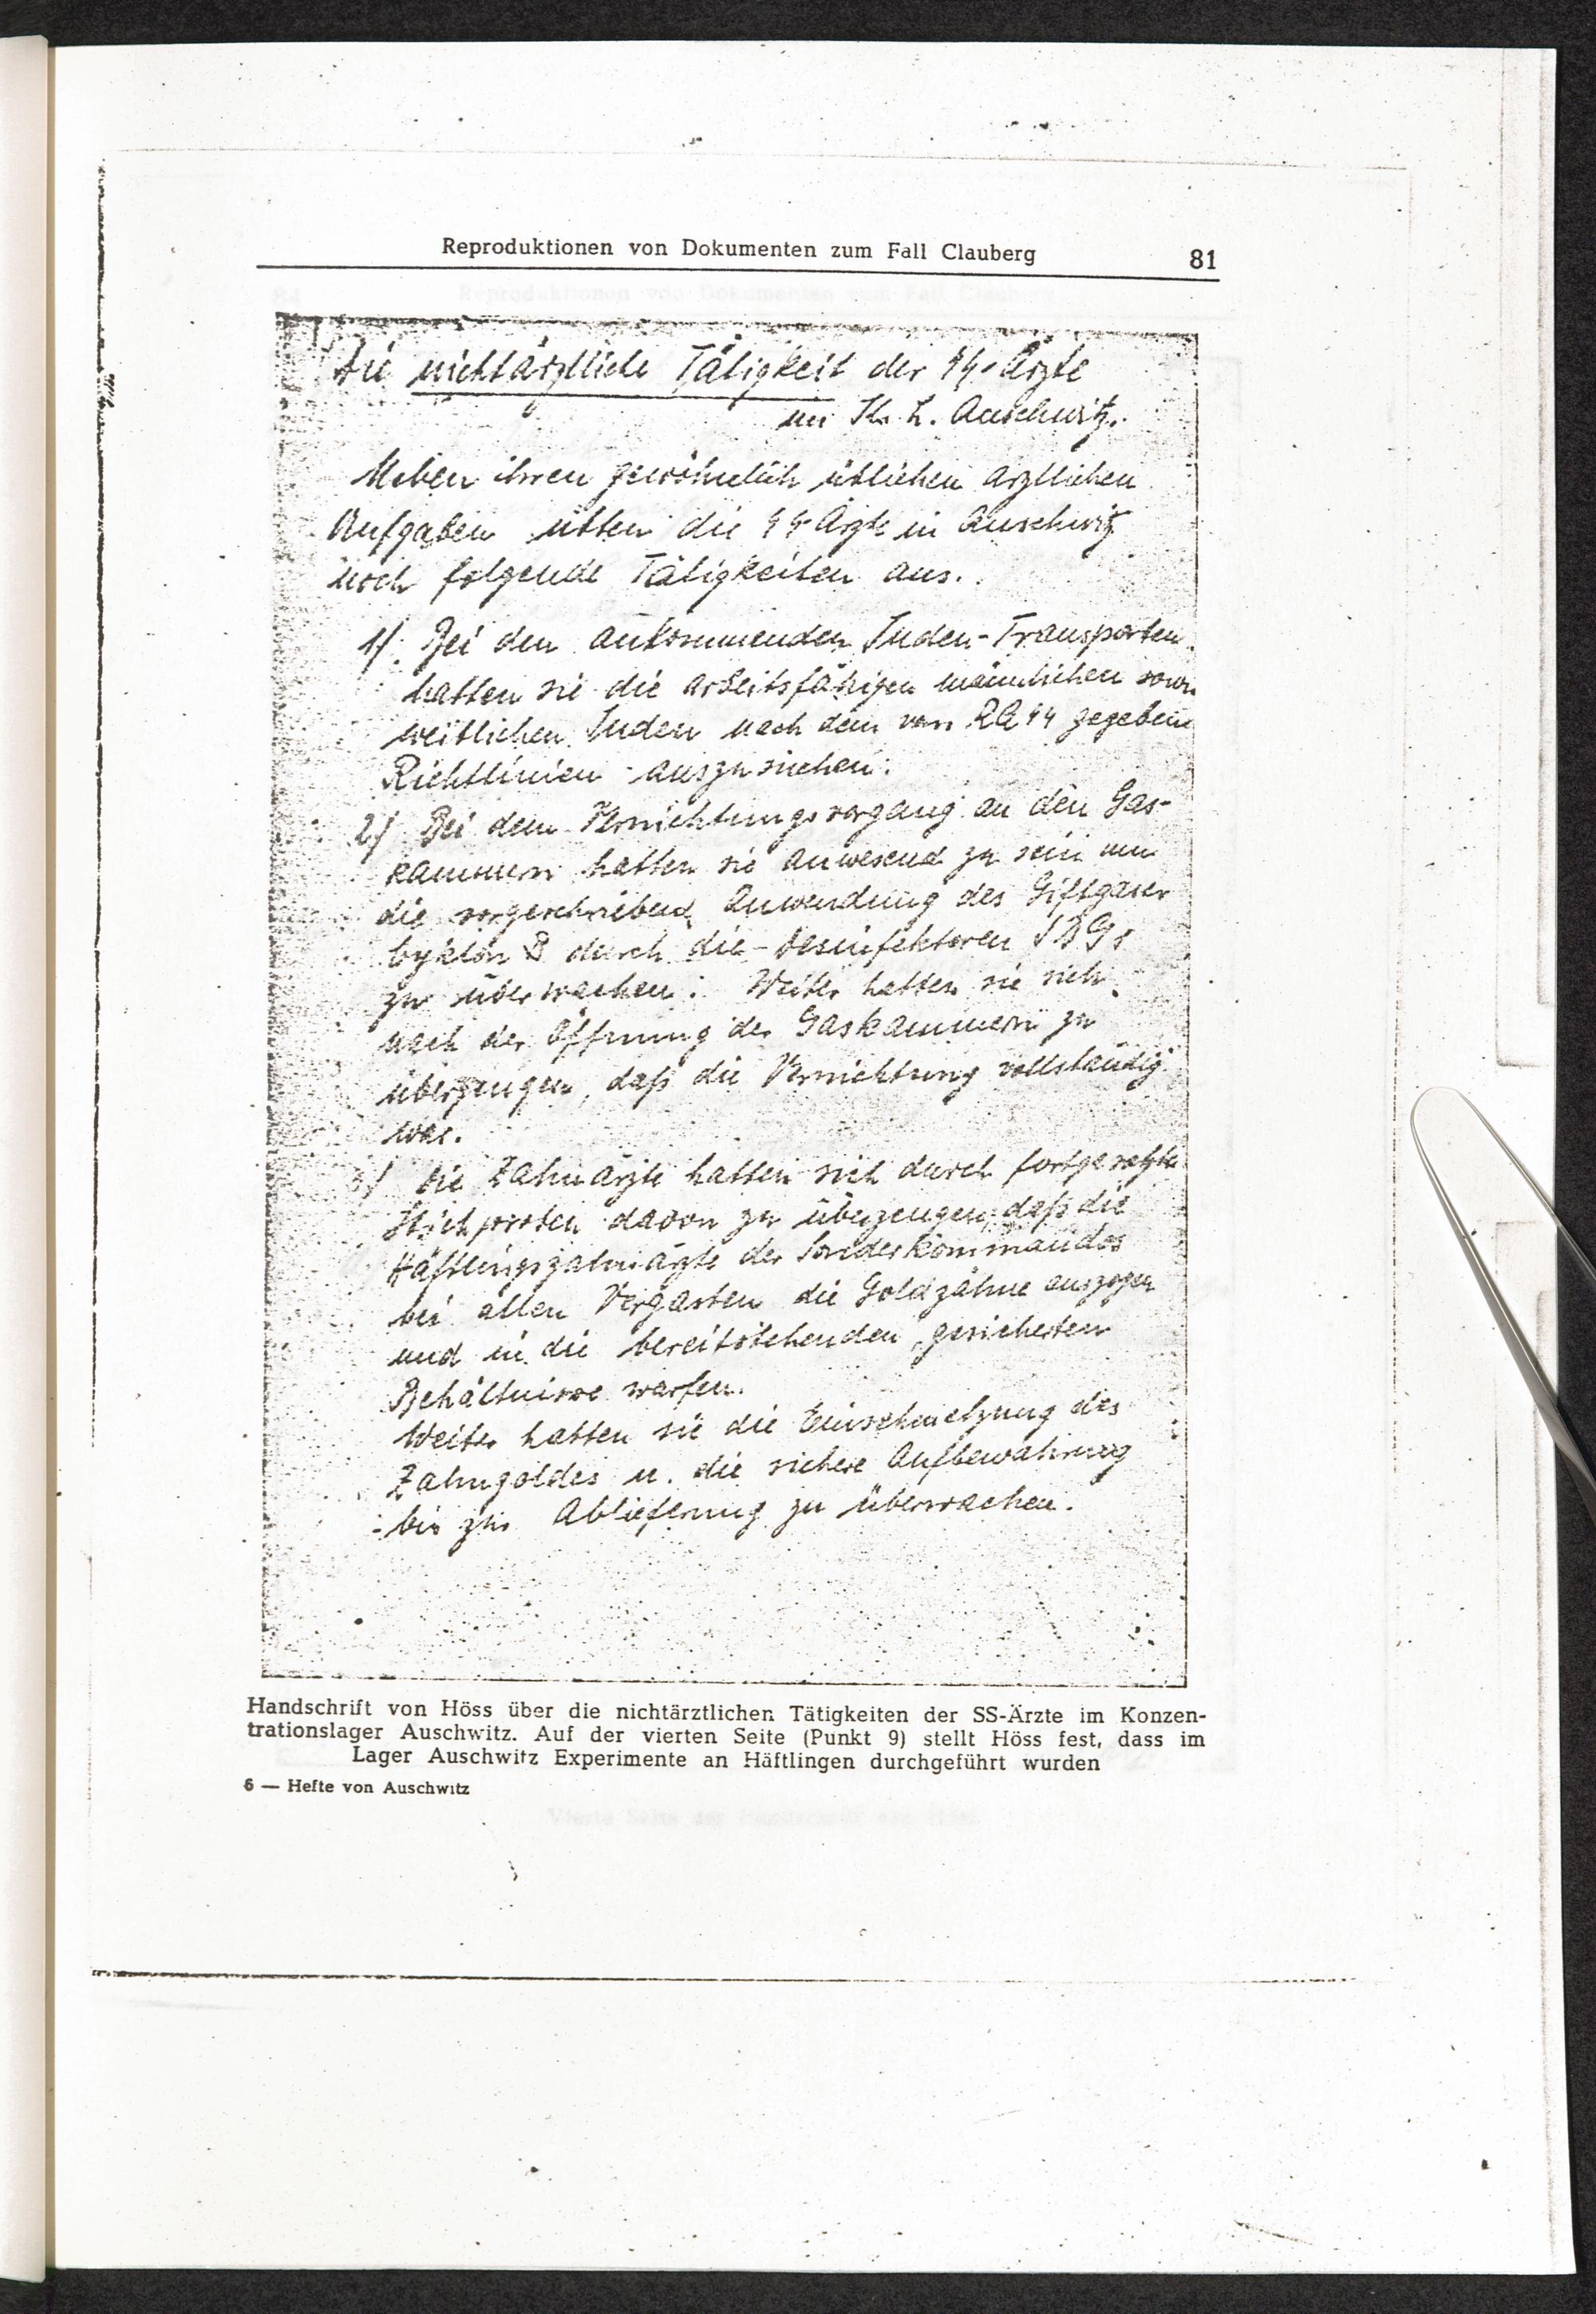 Reproduktionen von Dokumenten zum Fall Clauberg 81
Die nichtärztliche Tätigkeit der SS-Ärzte
im K. L. Auschwitz.
Neben ihren gewöhnlich üblichen ärztlichen
Aufgaben übten die SS-Ärzte in Auschwitz
noch folgende Tätigkeiten aus.
1/. Bei den ankommenden Juden-Transporten
hatten sie die arbeitsfähigen männlichen sowie
weiblichen Juden nach dem von RA SS gegeben
Richtlinien auszusuchen.
2/ Bei dem Vernichtungsvorgang an den Gas-
kammern hatten sie anwesend zu sein um
die vorgeschriebene Anwendung des Giftgases
Cyklon B durch die Desinfektoren SDGs
zu überwachen. Weiter hatten sie sich
nach der Öffnung der Gaskammern zu
überzeugen, daß die Vernichtung vollständig
war.
3/ Die Zahnärzte hatten sich durch fortgesetzte
Stichproben davon zu überzeugen, daß die
Häftlingszahnärzte der Sonderkommandos
bei allen Vergasten die Goldzähne auszogen
und in die bereitstehenden, gesicherten
Behältnisse warfen.
Weiter hatten sie die Einschmelzung des
Zahngoldes u. die sichere Aufbewahrung
bis zur Ablieferung zu überwachen.
Handschrift von Höss über die nichtärztlichen Tätigkeiten der SS-Ärzte im Konzen-
trationslager Auschwitz. Auf der vierten Seite (Punkt 9) stellt Höss fest, dass im
Lager Auschwitz Experimente an Häftlingen durchgeführt wurden
6 — Hefte von Auschwitz